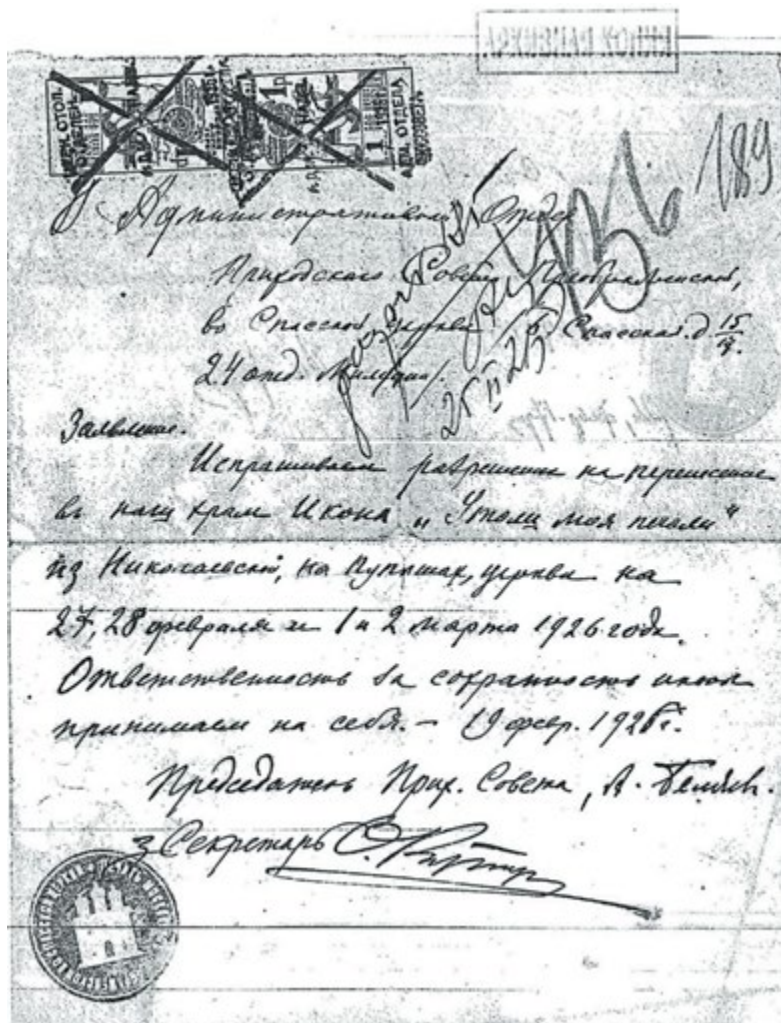 189
В Административный Отдел
Приходского Совета Преображенской,
во Спасской церкви Б. Спасская д. 15/17.
24 отд. Милиции.
25 II 26
Заявление.
Испрашиваем разрешение на перенесение
в наш храм Икона „Утоли моя печали"
из Николаевской, на Пупышах, церкви на
27, 28 февраля и 1 и 2 марта 1926 года.
Ответственность за сохранность иконы
принимаем на себя. – 19 февр. 1926 г.
Председатель Прих. Совета, А. Беляев.
Секретарь С.